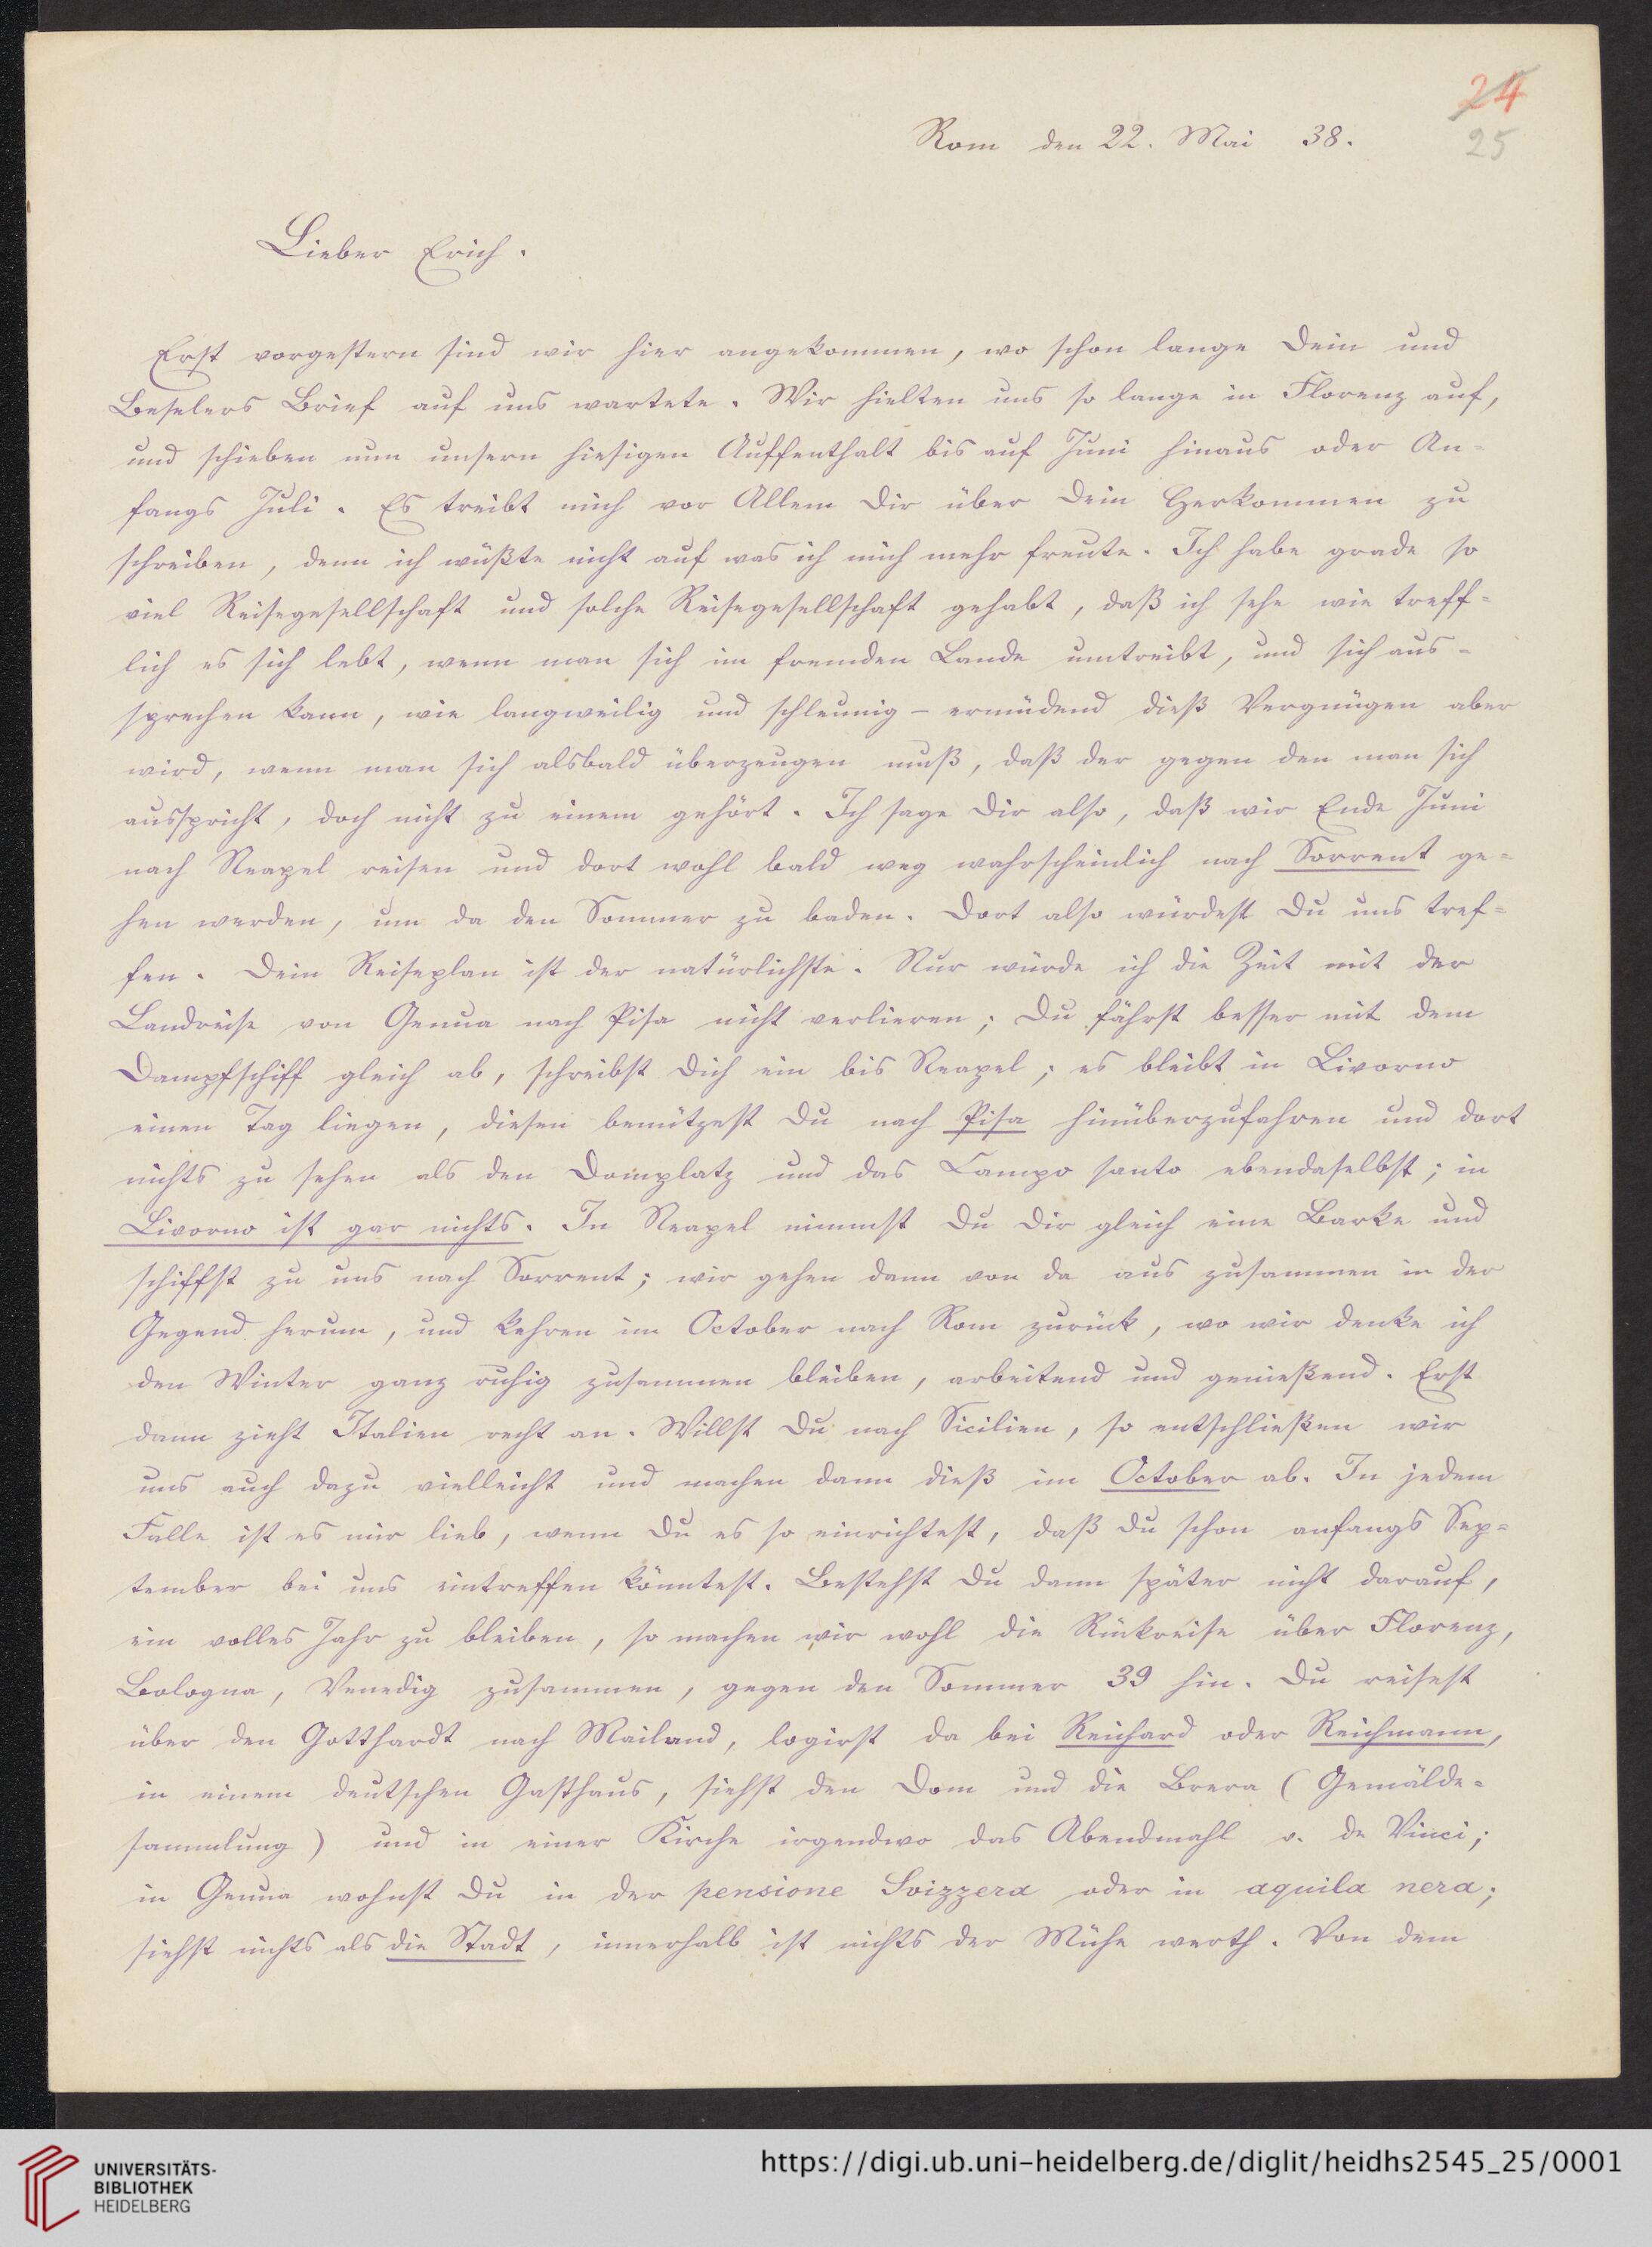 24
Rom den 22. Mai 38.
25
Lieber Erich.
Erst vorgestern sind wir hier angekommen, wo schon lange Dein und
Beselers Brief auf uns wartete. Wir hielten uns so lange in Florenz auf,
und schieben nun unsern hiesigen Auffenthalt bis auf Juni hinaus oder An-
fangs Juli. Es treibt mich vor Allem Dir über Dein Herkommen zu
schreiben, denn ich wüßte nicht auf was ich mich mehr freute. Ich habe grade so
viel Reisegesellschaft und solche Reisegesellschaft gehabt, daß ich sehe wie treff-
lich es sich lebt, wenn man sich im fremden Lande umtreibt, und sich aus-
sprechen kann, wie langweilig und schleunig-ermüdend dieß Vergnügen aber
wird, wenn man sich alsbald überzeugen muß, daß der gegen den man sich
ausspricht, doch nicht zu einem gehört. Ich sage Dir also, daß wir Ende Juni
nach Neapel reisen und dort wohl bald weg wahrscheinlich nach Sorrent ge-
hen werden, um da den Sommer zu baden. Dort also würdest Du uns tref-
fen. Dein Reiseplan ist der natürlichste. Nur würde ich die Zeit mit der
Landreise von Genua nach Pisa nicht verlieren; Du fährst besser mit dem
Dampfschiff gleich ab, schreibst Dich ein bis Neapel; es bleibt in Livorno
einen Tag liegen, diesen benützest Du nach Pisa hinüberzufahren und dort
nichts zu sehen als den Domplatz und das Campo santo ebendaselbst; in
Livorno ist gar nichts. In Neapel nimmst Du Dir gleich eine Barke und
schiffst zu uns nach Sorrent; wir gehen dann von da aus zusammen in der
Gegend herum, und kehren im October nach Rom zurück, wo wir denke ich
den Winter ganz ruhig zusammen bleiben, arbeitend und genießend. Erst
dann zieht Italien recht an. Willst Du nach Sicilien, so entschließen wir
uns auch dazu vielleicht und machen dann dieß im October ab. In jedem
Falle ist es mir lieb, wenn Du es so einrichtest, daß Du schon anfangs Sep-
tember bei uns eintreffen könntest. Bestehst Du dann später nicht darauf,
ein volles Jahr zu bleiben, so machen wir wohl die Rükreise über Florenz,
Bologna, Venedig zusammen, gegen den Sommer 39 hin. Du reisest
über den Gotthardt nach Mailand, logirst da bei Reichard oder Reichmann,
in einem deutschen Gasthaus, siehst den Dom und die Brera (Gemälde-
sammlung) und in einer Kirche irgendwo das Abendmahl v. da Vinci;
in Genua wohnst Du in der pensione Svizzera oder in aquila nera;
siehst nichts als die Stadt, innerhalb ist nichts der Mühe werth. Von dem
UNIVERSITÄTS-
BIBLIOTHEK
HEIDELBERG
https://digi.ub.uni-heidelberg.de/diglit/heidhs2545_25/0001